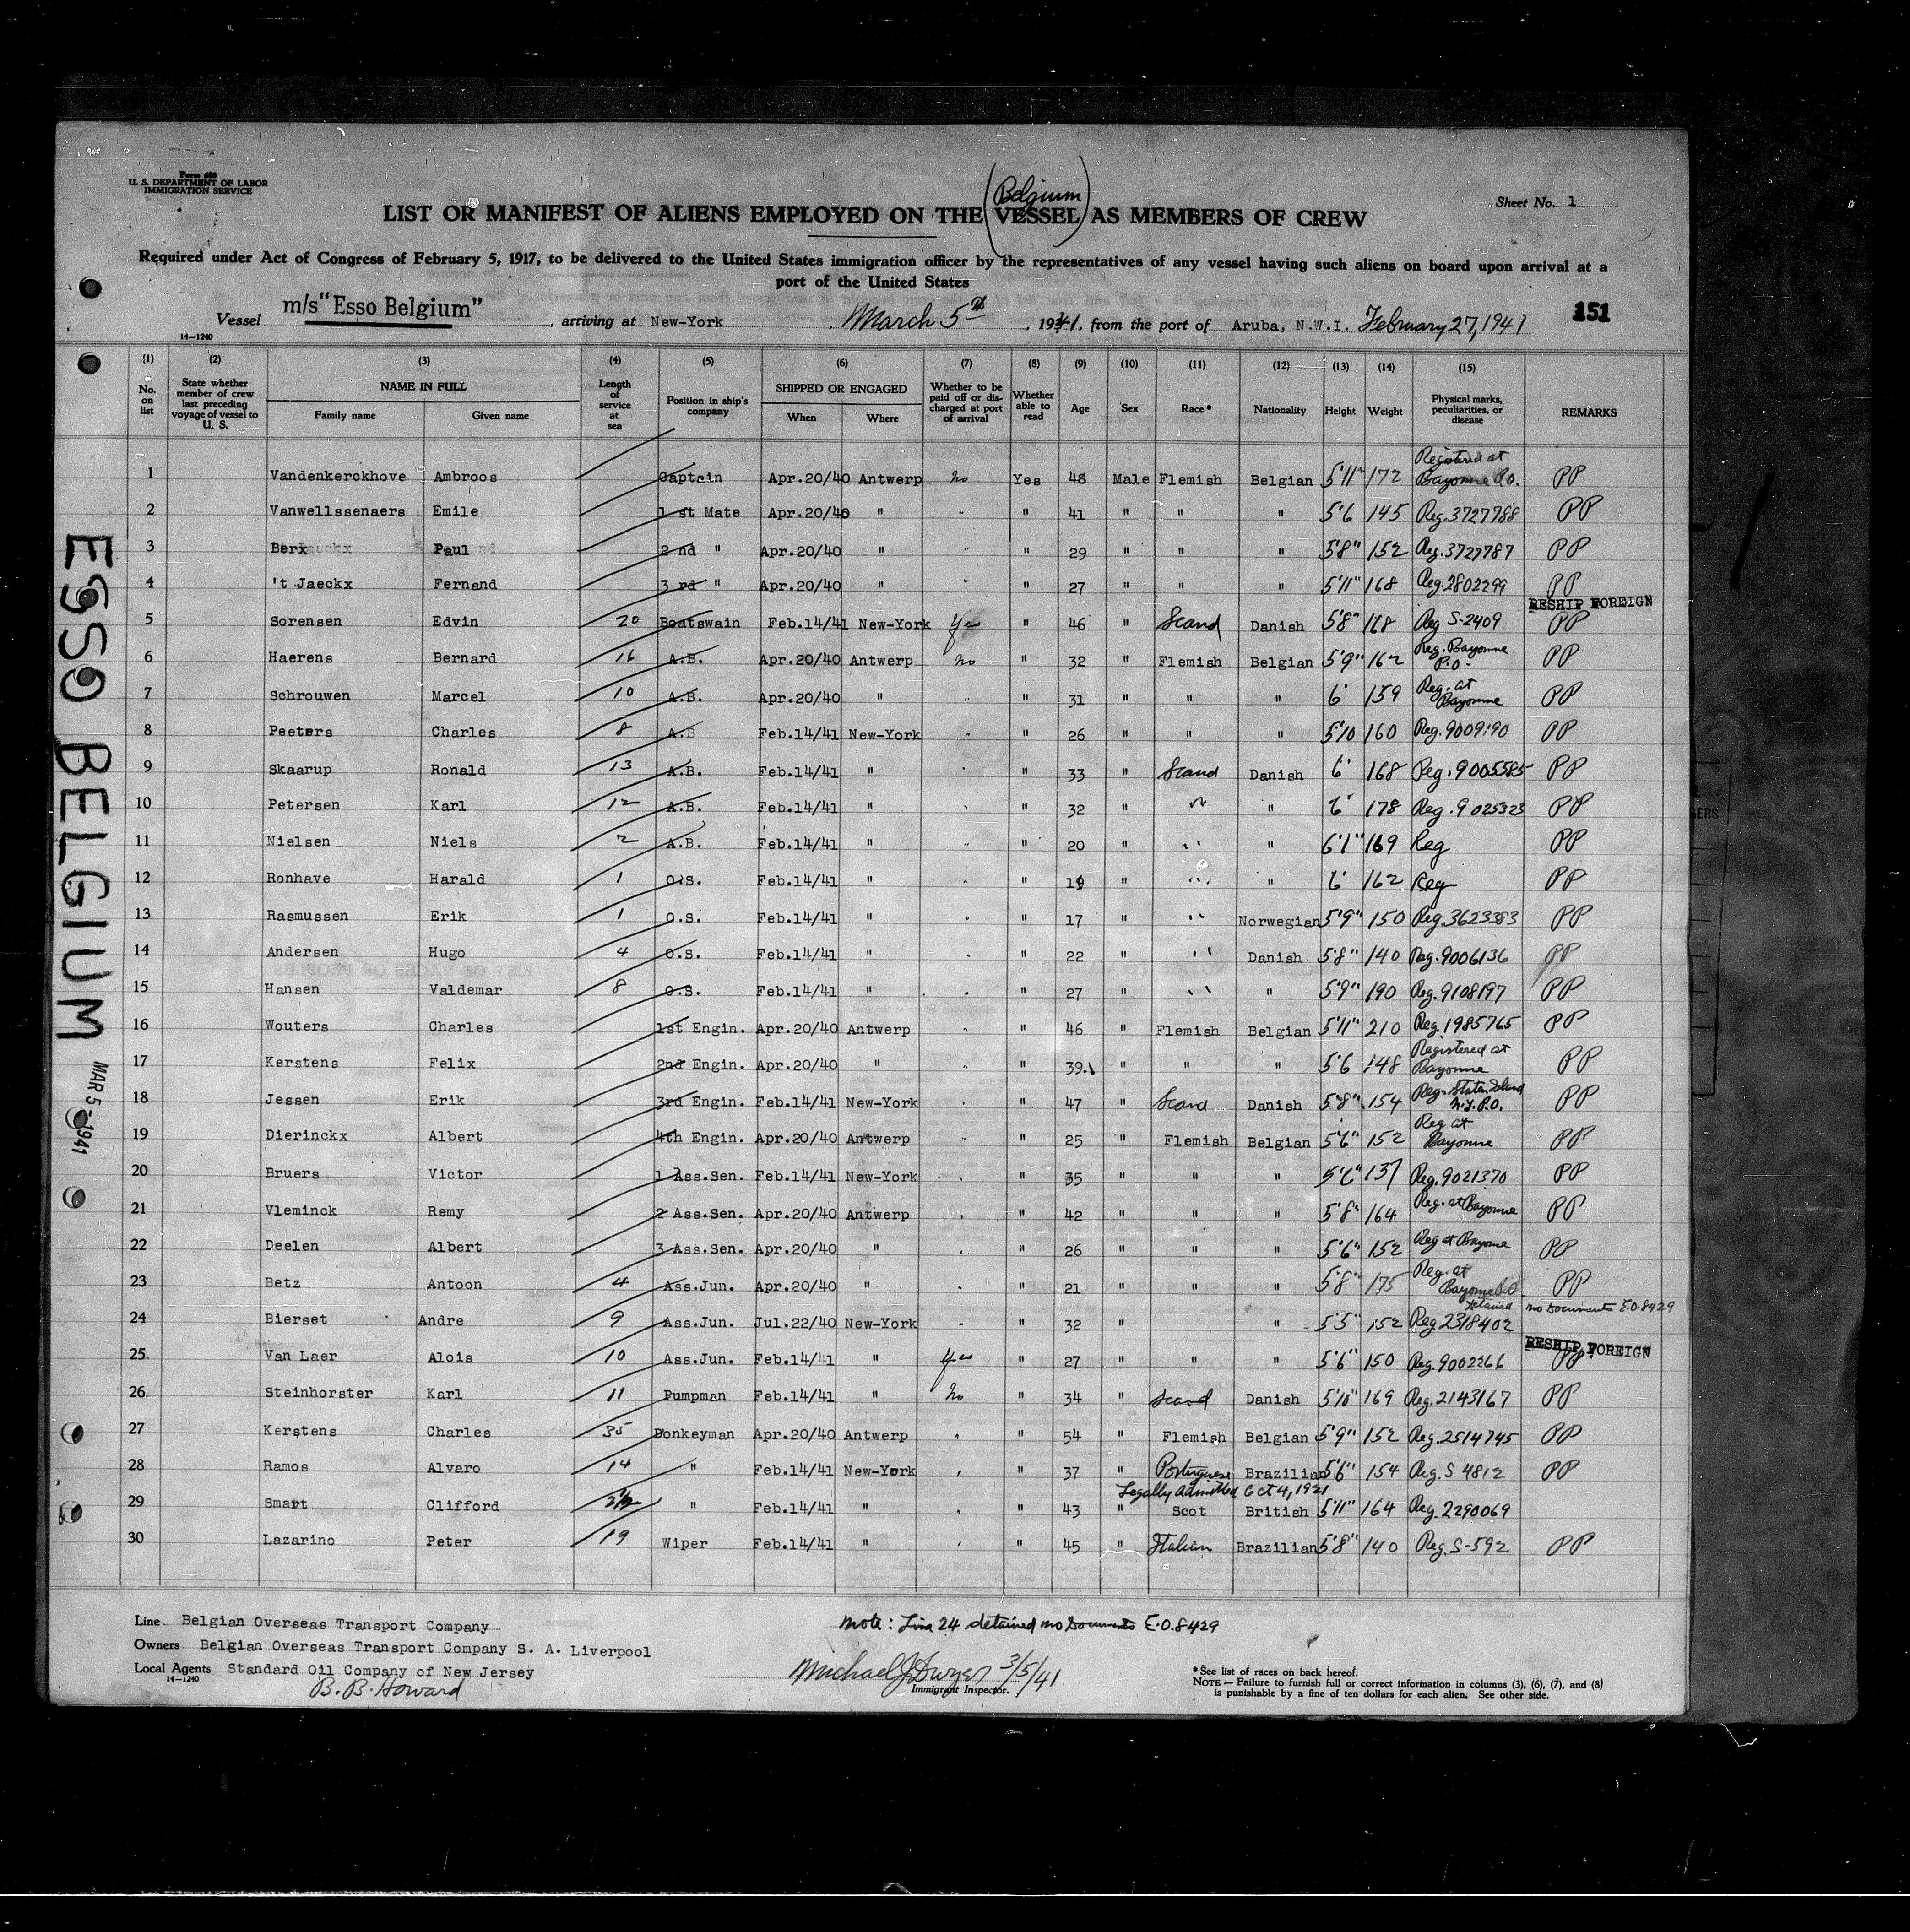 Form 680
U. S. DEPARTMENT OF LABOR
IMMIGRATION SERVICE
Sheet No. 1
(Belgium)
LIST OR MANIFEST OF ALIENS EMPLOYED ON THE VESSEL AS MEMBERS OF CREW
Required under Act of Congress of February 5, 1917, to be delivered to the United States immigration officer by the representatives of any vessel having such aliens on board upon arrival at a
port of the United States
151
Vessel m/s "Esso Belgium", arriving at New-York, March 5th, 1941, from the port of Aruba, N.W.I. February 27, 1941
14—1240
(1) (2) (3) (4) (5) (6) (7) (8) (9) (10) (11) (12) (13) (14) (15)
No. on list | State whether member of crew last preceding voyage of vessel to U. S. | NAME IN FULL Family name Given name | Length of service at sea | Position in ship's company | SHIPPED OR ENGAGED When Where | Whether to be paid off or discharged at port of arrival | Whether able to read | Age | Sex | Race* | Nationality | Height | Weight | Physical marks, peculiarities, or disease | REMARKS
1 Vandenkerckhove Ambroos Captain Apr.20/40 Antwerp no Yes 48 Male Flemish Belgian 5'11" 172 Registered at Bayonne P.O. PP
2 Vanwellssenaers Emile 1 st Mate Apr.20/40 " " " 41 " " " 5'6 145 Reg. 3727788 PP
3 Berx Paul 2 nd " Apr.20/40 " " " 29 " " " 5'8" 152 Reg. 3727787 PP
4 't Jaeckx Fernand 3 rd " Apr.20/40 " " " 27 " " " 5'11" 168 Reg. 2802299 PP
RESHIP FOREIGN
5 Sorensen Edvin 20 Boatswain Feb.14/41 New-York Yes " 46 " Scand Danish 5'8" 168 Reg S-2409 PP
6 Haerens Bernard 16 A.B. Apr.20/40 Antwerp no " 32 " Flemish Belgian 5'9" 162 Reg. Bayonne P.O. PP
7 Schrouwen Marcel 10 A.B. Apr.20/40 " " " 31 " " " 6' 159 Reg. at Bayonne PP
8 Peeters Charles 8 A.B Feb.14/41 New-York " " 26 " " " 5'10 160 Reg. 9009190 PP
9 Skaarup Ronald 13 A.B. Feb.14/41 " " " 33 " Scand Danish 6' 168 Reg. 9005585 PP
10 Petersen Karl 12 A.B. Feb.14/41 " " " 32 " " " 6' 178 Reg. 9025323 PP
11 Nielsen Niels 2 A.B. Feb.14/41 " " " 20 " " " 6'1" 169 Reg PP
12 Ronhave Harald 1 O.S. Feb.14/41 " " " 19 " " " 6' 162 Reg PP
13 Rasmussen Erik 1 O.S. Feb.14/41 " " " 17 " " Norwegian 5'9" 150 Reg. 3623383 PP
14 Andersen Hugo 4 O.S. Feb.14/41 " " " 22 " " Danish 5'8" 140 Reg. 9006136 PP
15 Hansen Valdemar 8 O.S. Feb.14/41 " " " 27 " " " 5'9" 190 Reg. 9108197 PP
16 Wouters Charles 1st Engin. Apr.20/40 Antwerp " " 46 " Flemish Belgian 5'11" 210 Reg. 1985765 PP
17 Kerstens Felix 2nd Engin. Apr.20/40 " " " 39. " " " 5'6 148 Registered at Bayonne PP
18 Jessen Erik 3rd Engin. Feb.14/41 New-York " " 47 " Scand Danish 5'8" 154 Reg. Staten Island N.Y. P.O. PP
19 Dierinckx Albert 4th Engin. Apr.20/40 Antwerp " " 25 " Flemish Belgian 5'6" 152 Reg at Bayonne PP
20 Bruers Victor 1 Ass.Sen. Feb.14/41 New-York " " 35 " " " 5'6" 137 Reg. 9021370 PP
21 Vleminck Remy 2 Ass.Sen. Apr.20/40 Antwerp " " 42 " " " 5'8" 164 Reg. at Bayonne PP
22 Deelen Albert 3 Ass.Sen. Apr.20/40 " " " 26 " " " 5'6" 152 Reg at Bayonne PP
23 Betz Antoon 4 Ass.Jun. Apr.20/40 " " " 21 " " " 5'8" 175 Reg. at Bayonne P.O PP
24 Bierset Andre 9 Ass.Jun. Jul.22/40 New-York " " 32 " " 5'5" 152 detained Reg 2318402 no Documents E.O. 8429
RESHIP FOREIGN
25 Van Laer Alois 10 Ass.Jun. Feb.14/41 " Yes " 27 " " " 5'6" 150 Reg. 9002266 PP
26 Steinhorster Karl 11 Pumpman Feb.14/41 " no " 34 " Scand Danish 5'10" 169 Reg. 2143167 PP
27 Kerstens Charles 35 Donkeyman Apr.20/40 Antwerp " " 54 " Flemish Belgian 5'9" 152 Reg. 2514745 PP
28 Ramos Alvaro 14 " Feb.14/41 New-York " " 37 " Portuguese Brazilian 5'6" 154 Reg. S 4812 PP
Legally Admitted Oct 4, 1921
29 Smart Clifford " Feb.14/41 " " " 43 " Scot British 5'11" 164 Reg. 2290069
30 Lazarino Peter 19 Wiper Feb.14/41 " " " 45 " Italian Brazilian 5'8" 140 Reg. S-592 PP
Line Belgian Overseas Transport Company
Owners Belgian Overseas Transport Company S. A. Liverpool
Local Agents Standard Oil Company of New Jersey
14—1240
B. B. Howard
Note: Line 24 detained no Documents E.O. 8429
Michael J. Dwyer 3/5/41
Immigrant Inspector.
*See list of races on back hereof.
NOTE — Failure to furnish full or correct information in columns (3), (6), (7), and (8)
is punishable by a fine of ten dollars for each alien. See other side.
ESSO BELGIUM
MAR 5 - 1941